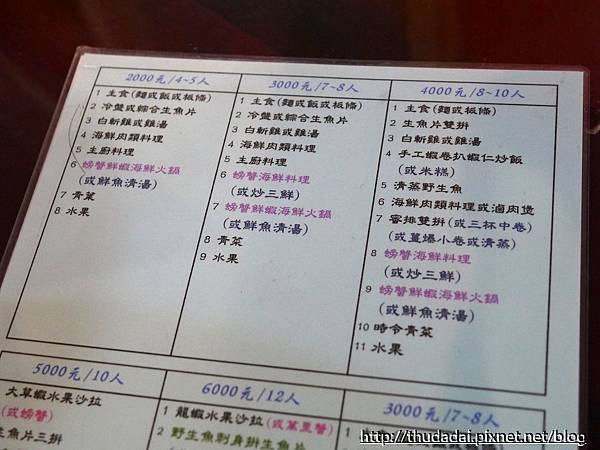 2000元/4~5人
1 主食(麵或飯或板條)
2 冷盤或綜合生魚片
3 白斬雞或雞湯
4 海鮮肉類料理
5 主廚料理
6 螃蟹鮮蝦海鮮火鍋
(或鮮魚清湯)
7 青菜
8 水果
3000元/7~8人
1 主食(麵或飯或板條)
2 冷盤或綜合生魚片
3 白斬雞或雞湯
4 海鮮肉類料理
5 主廚料理
6 螃蟹海鮮料理
(或炒三鮮)
7 螃蟹鮮蝦海鮮火鍋
(或鮮魚清湯)
8 青菜
9 水果
4000元/8~10人
1 主食(麵或飯或板條)
2 生魚片雙拼
3 白斬雞或雞湯
4 手工蝦卷扒蝦仁炒飯
(或米糕)
5 清蒸野生魚
6 海鮮肉類料理或滷肉煲
7 蜜排雙拼(或三杯中卷)
(或薑爆小卷或清蒸)
8 螃蟹海鮮料理
(或炒三鮮)
9 螃蟹鮮蝦海鮮火鍋
(或鮮魚清湯)
10 時令青菜
11 水果
5000元/10人
大草蝦水果沙拉
(或螃蟹)
生魚片三拼
6000元/12人
1 龍蝦水果沙拉(或萬里蟹)
2 野生魚刺身拼生魚片
3000元/7~8人
http://thudadai.pixnet.net/blog